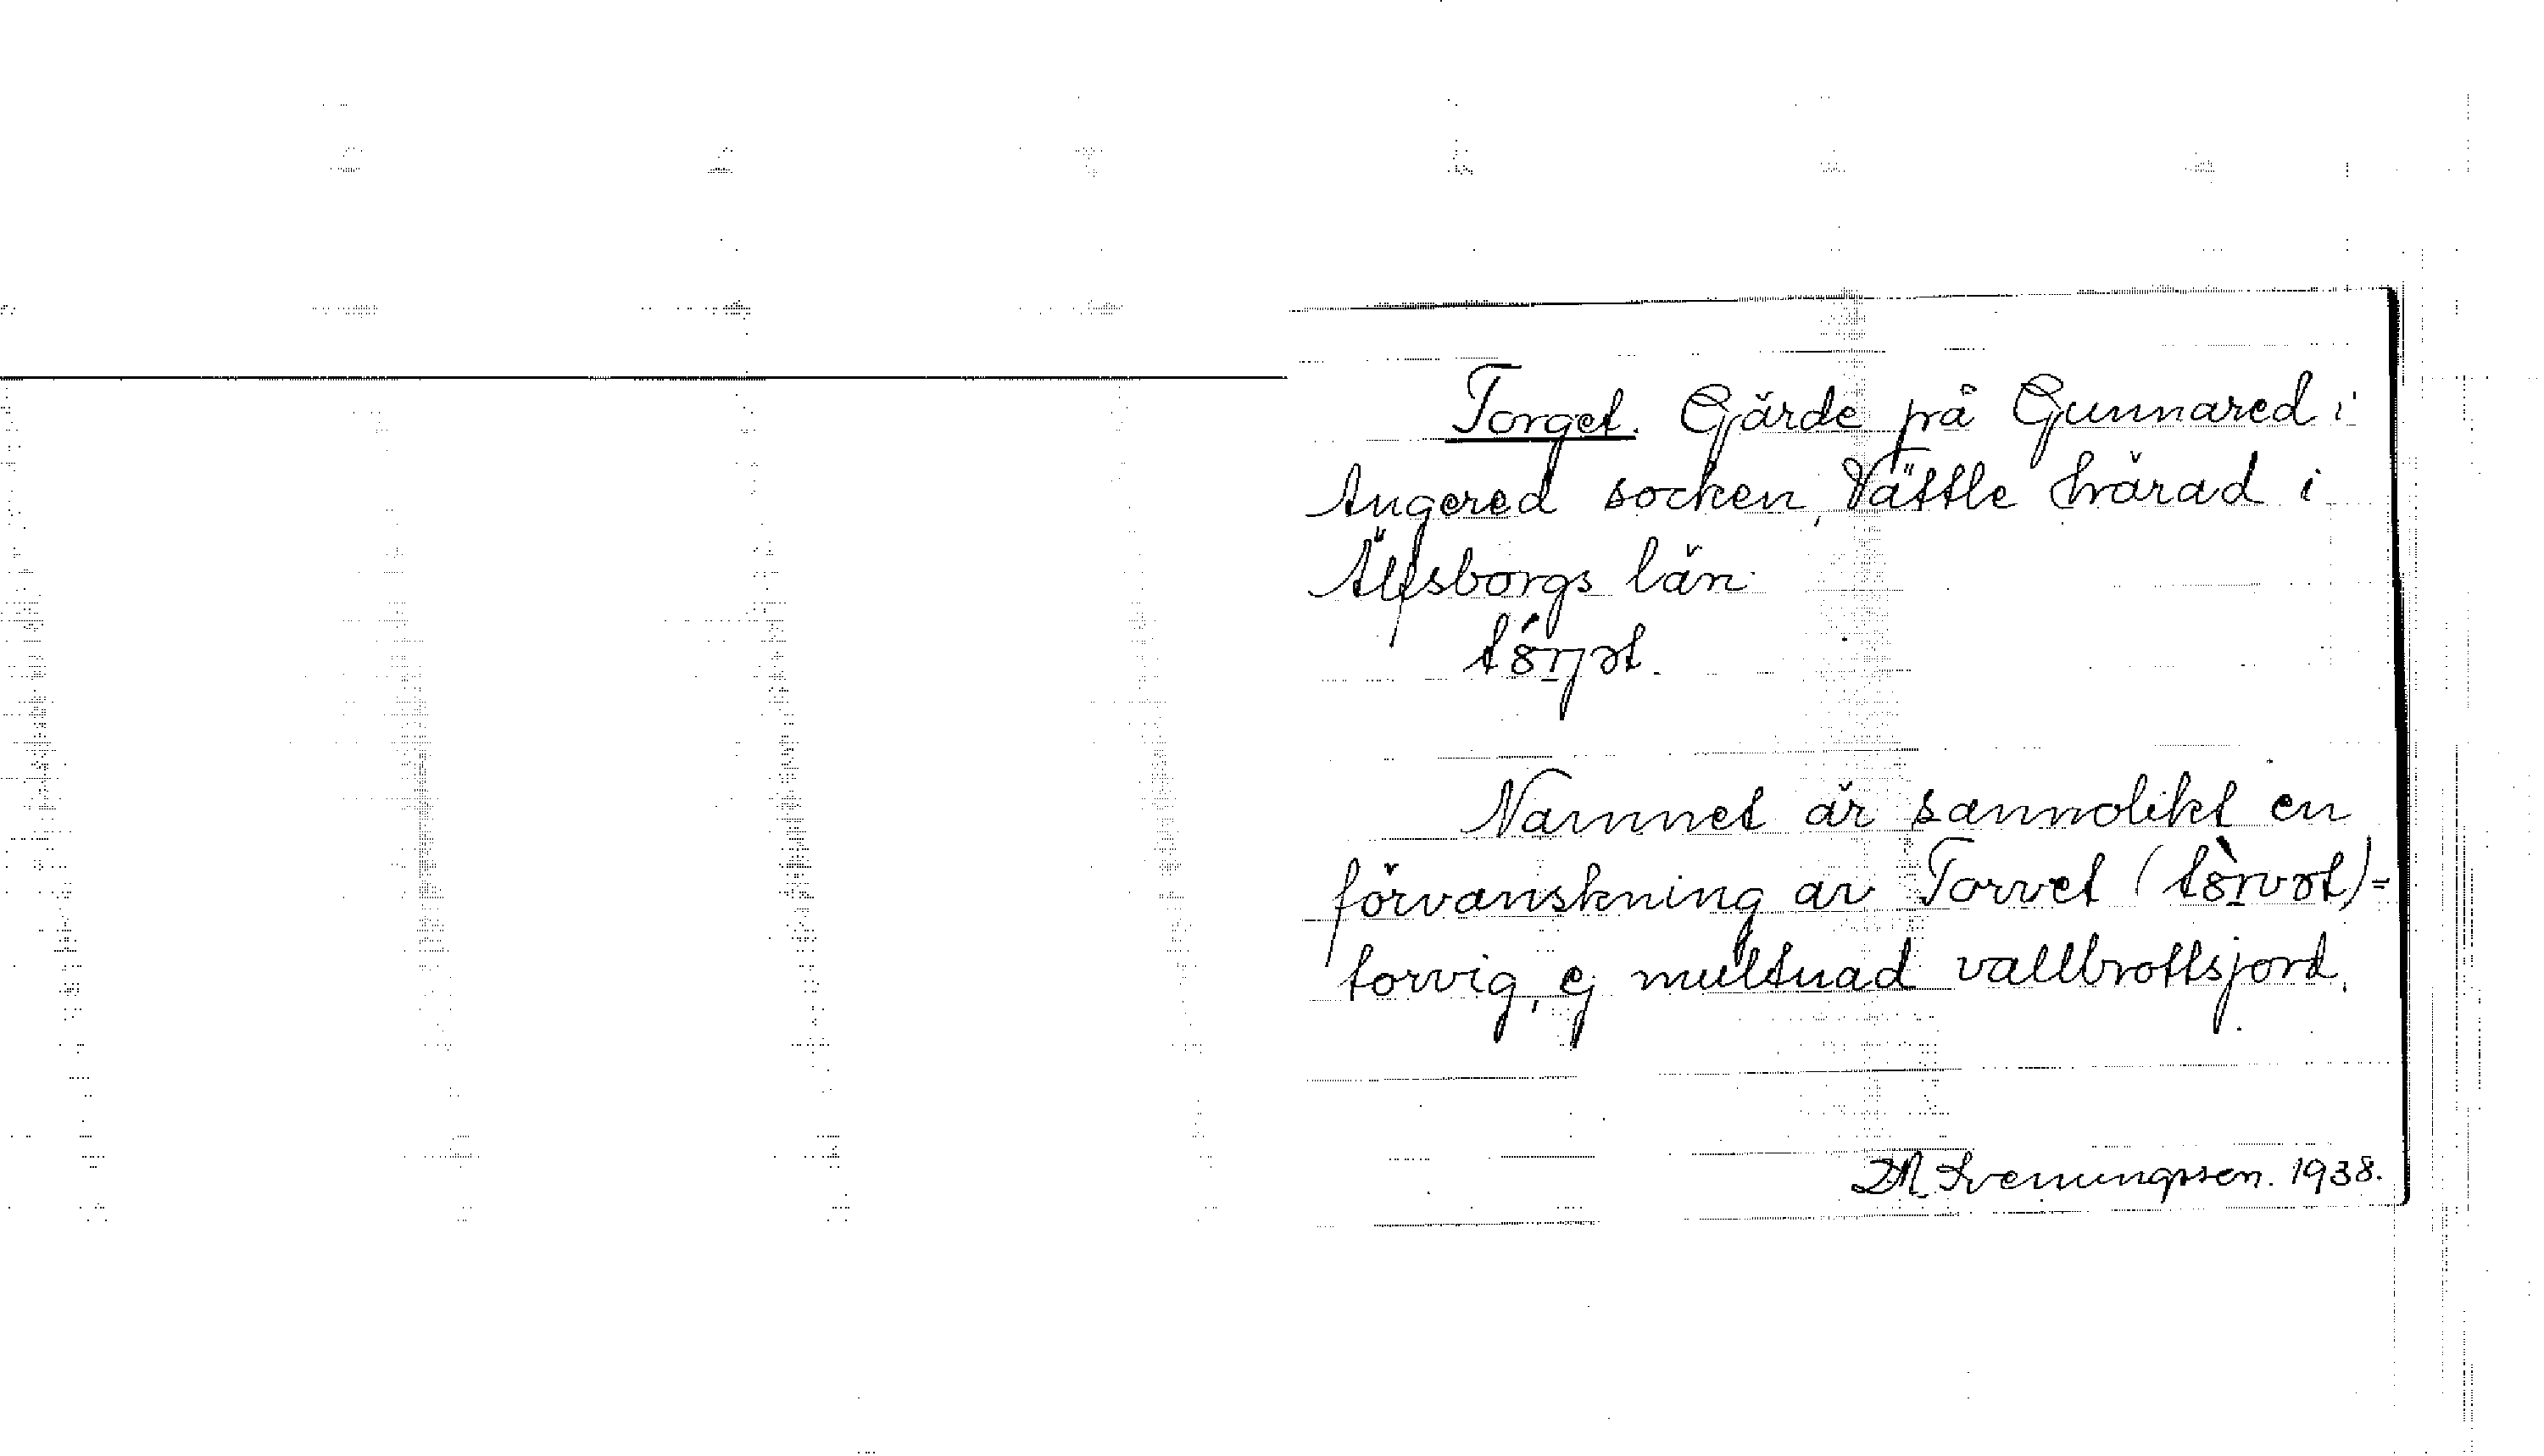 Torget. Gärde på Gunnared i
Angered socken, Vättle härad i
Älfsborgs län.
Namnet är sannolikt en
förvanskning av Torvet ( )=
torvig, ej multnad vallbrottsjord.
Svenungsson. 1938.